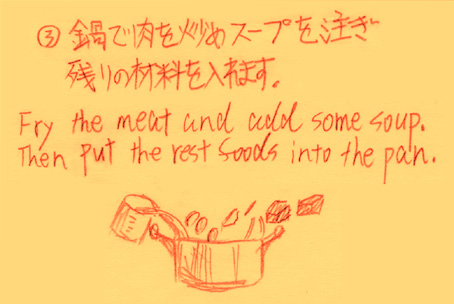 ③ 鍋で肉を炒めスープを注ぎ
残りの材料を入れます。
Fry the meat and add some soup.
Then put the rest foods into the pan.